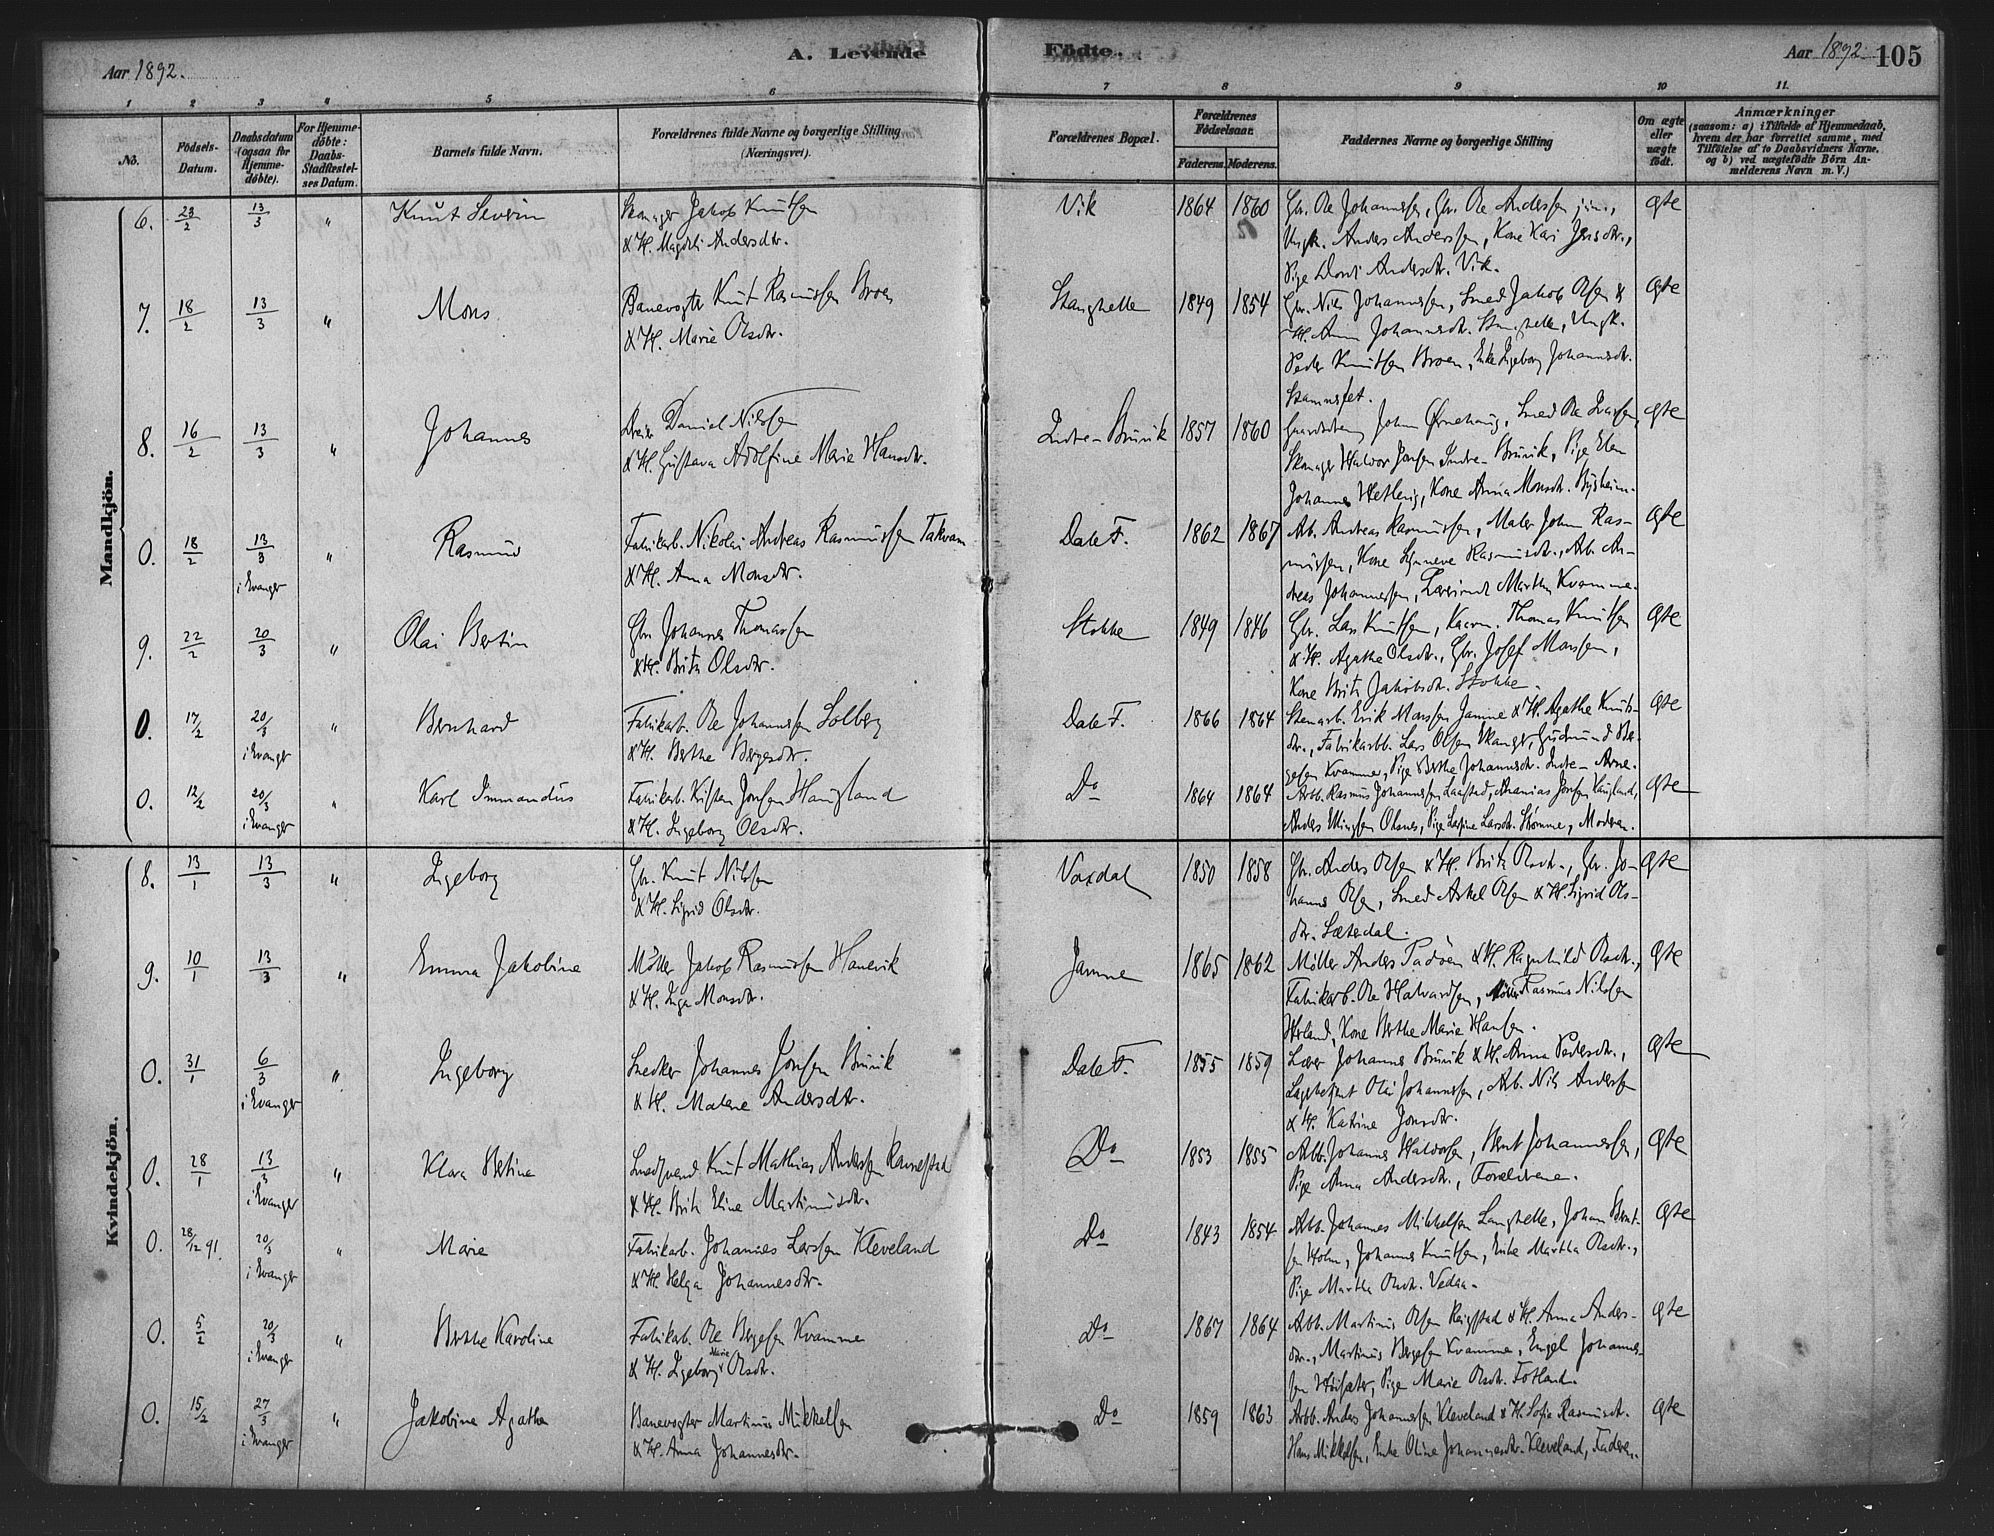 Aar 1892.
A. Levende
Födte.
Aar 1892 105
1 2 3 4 5 6 7 8 9 10 11.
No.
Födsels-
Datum.
Daabsdatum
(ogsaa för
Hjemme-
döbte).
For Hjemme-
döbte:
Daabs-
Stadfæstel-
ses Datum.
Barnets fulde Navn.
Forældrenes fulde Navne og borgerlige Stilling
(Næringsvei).
Forældrenes Bopæl.
Forældrenes
Födselsaar.
Faderens. Moderens.
Faddernes Navne og borgerlige Stilling
Om ægte
eller
uægte
födt.
Anmærkninger
(saasom: a) i Tilfælde af Hjemmedaab,
hvem der har forrettet samme, med
Tilföielse af to Daabsvidners Navne,
og b) ved uægtefödte Börn An-
melderens Navn m. V.)
Mandkjön.
6. 23/2 13/3 " Knut Severin
Skomager Jakob Knutsen
& H. Magdeli Andersdtr.
Vik 1864 1860
Gbr. Ole Johannessen, Gbr. Ole Andersen jun.,
Ungk. Anders Anderssen, Kone Kari Jensdtr.,
Pige Dorti Andersdtr. Vik.
ægte
7. 18/2 13/3 " Mons
Banevogter Knut Rasmussen Broen
& H. Marie Olsdtr.
Stanghelle 1849 1854
Gbr. Nils Johannessen, Smed Jakob Olsen &
H. Anna Johannesdtr. Stanghelle, Ungk.
Peder Knutsen Broen, Enke Ingeborg Johannesdtr.
ægte
8. 16/2 13/3 " Johannes
Daniel Nilssen
& H. Gustava Adolfine Marie Hansdtr.
Indre-Bruvik 1857 1860
John Ørnehaug, Smed Ole Ivarsen,
Skomager Halvor Jonsen Indre-Bruvik, Pige Elen
Johannes Hetlevig, Kone Anna Monsdtr. Bysheim.
ægte
0. 18/2 13/3 i Evanger " Rasmus
Fabrikarb. Nikolai Andreas Rasmussen Takvam
& H. Anna Monsdtr.
Dale F. 1862 1867
Arb. Andreas Rasmussen, Maler John Ras-
mussen, Kone Synneve Rasmusdtr., Arb. An-
dreas Johannessen, Lærerinde Martha Kvamme.
ægte
9. 22/2 20/3 " Olai Bertin
Gbr. Johannes Thomassen
& H. Brita Olsdtr.
Stokke 1849 1846
Gbr. Lars Knutsen, Kaarm. Thomas Knutsen
& H. Agathe Olsdtr., Gbr. Josef Monsen,
Kone Brita Jakobsdtr. Stokke.
ægte
0. 17/2 20/3 i Evanger " Bernhard
Fabrikarb. Ole Johannessen Solberg
& H. Berthe Bergesdtr.
Dale F. 1866 1864
Stenarb. Erik Monsen Jamne & H. Agathe Knuts-
dtr., Fabrikarbb. Lars Olsen Gudmund Ber-
gesen Kvamme, Pige Berthe Johannesdtr. Indre-Arne.
ægte
0. 12/2 20/3 i Evanger " Karl Immandus
Fabrikarb. Kristen Jonsen Haugland
& H. Ingeborg Olsdtr.
Do 1864 1864
Arbb. Rasmus Johannessen Laastad, Ananias Jonsen Haugland,
Anders Ellingsen Olsnes, Pige Larsine Larsdtr. Strømme, Moderen.
ægte
Kvindekjön.
8. 13/1 13/3 " Ingeborg
Gbr. Knut Nilssen
& H. Sigrid Olsdtr.
Vaxdal 1850 1858
Gbr. Anders Olsen & H. Brita Olsdtr., Gbr. Jo-
hannes Olsen, Smed Askel Olsen & H. Sigrid Ols-
dtr. Sætredal.
ægte
9. 10/1 13/3 " Emma Jakobine
Møller Jakob Rasmussen Hanevik
& H. Inga Monsdtr.
Jamne 1865 1862
Møller Anders Padøen & H. Ragnhild Olsdtr.,
Fabrikarb. Ole Halvardsen, Møller Rasmus Nilssen
Herland, Kone Berthe Marie Hansen.
ægte
0. 31/1 6/3 i Evanger " Ingeborg
Snedker Johannes Jonsen Bruvik
& H. Malene Andersdtr.
Dale F. 1855 1859
Lærer Johannes Bruvik & H. Anna Pedersdtr.,
Lagebetjent Olai Johannessen, Arb. Nils Andersen
& H. Katrine Jonsdtr.
ægte
0. 28/1 13/3 i Evanger " Klara Bertina
Smedsvend Knut Mathias Andersen Ravnestad
& H. Brita Eline Martinusdtr.
Do 1853 1855
Arbb. Johannes Haldorsen, Bernt Johannessen,
Pige Anna Andersdtr., Forældrene.
ægte
0. 28/12 91. 20/3 i Evanger " Marie
Fabrikarb. Johannes Larssen Kleveland
& H. Helga Johannesdtr.
Do 1843 1854
Arbb. Johannes Mikkelsen Langhelle, Johan Bernt-
sen Holm, Johannes Knutsen, Enke Martha Olsdtr.,
Pige Martha Olsdtr. Vedaa.
ægte
0. 5/2 20/3 i Evanger " Berthe Karoline
Fabrikarb. Ole Bergesen Kvamme
& H. Ingeborg Marie Olsdtr.
Do 1867 1864
Arbb. Martinus Olsen & H. Anna Anders-
dtr., Martinus Bergesen Kvamme, Engel Johannes-
sen Husæter, Pige Marie Olsdr. Fotland.
ægte
0. 15/2 27/3 i Evanger " Jakobine Agathe
Banevogter Martinus Mikkelsen
& H. Anna Johannesdtr.
Do 1859 1863
Arbb. Anders Johannessen Kleveland & H. Sofie Rasmusdtr.
Hans Mikkelsen, Enke Oline Johannesdtr. Kleveland, Faderen.
ægte